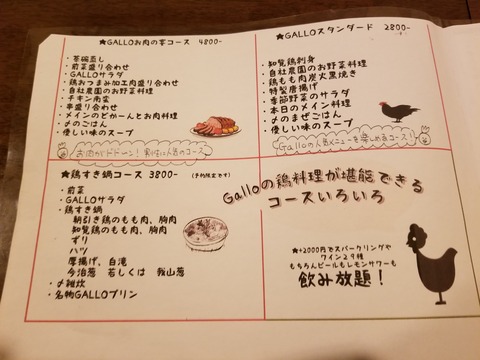 ★GALLOお肉の宴コース 4800-
・茶碗蒸し
・前菜盛り合わせ
・GALLOサラダ
・鶏おつまみ加工肉盛り合わせ
・自社農園のお野菜料理
・チキン南蛮
・串盛り合わせ
・メインのどかーんとお肉料理
・〆のごはん
・優しい味のスープ
お肉がドドーン!男性に人気のコース!
★GALLOスタンダード 2800-
・知覧鶏刺身
・自社農園のお野菜料理
・鶏もも肉炭火黒焼き
・特製唐揚げ
・季節野菜のサラダ
・本日のメイン料理
・〆のまぜごはん
・優しい味のスープ
Galloの人気メニューを楽しめるコース!
★鶏すき鍋コース 3800- (予約限定です)
・前菜
・GALLOサラダ
・鶏すき鍋
朝引き鶏のもも肉、胸肉
知覧鶏のもも肉、胸肉
ずり
ハツ
厚揚げ、白滝
今治葱 若しくは 我山葱
・〆雑炊
・名物GALLOプリン
Galloの鶏料理が堪能できる
コースいろいろ
★+2000円でスパークリングや
ワイン29種
もちろんビールもレモンサワーも
飲み放題!